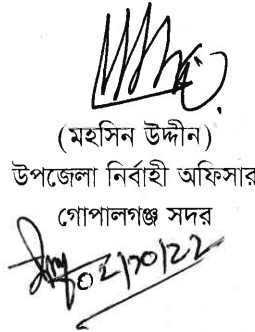 (মহসিন উদ্দীন)
উপজেলা নির্বাহী অফিসার
গোপালগঞ্জ সদর